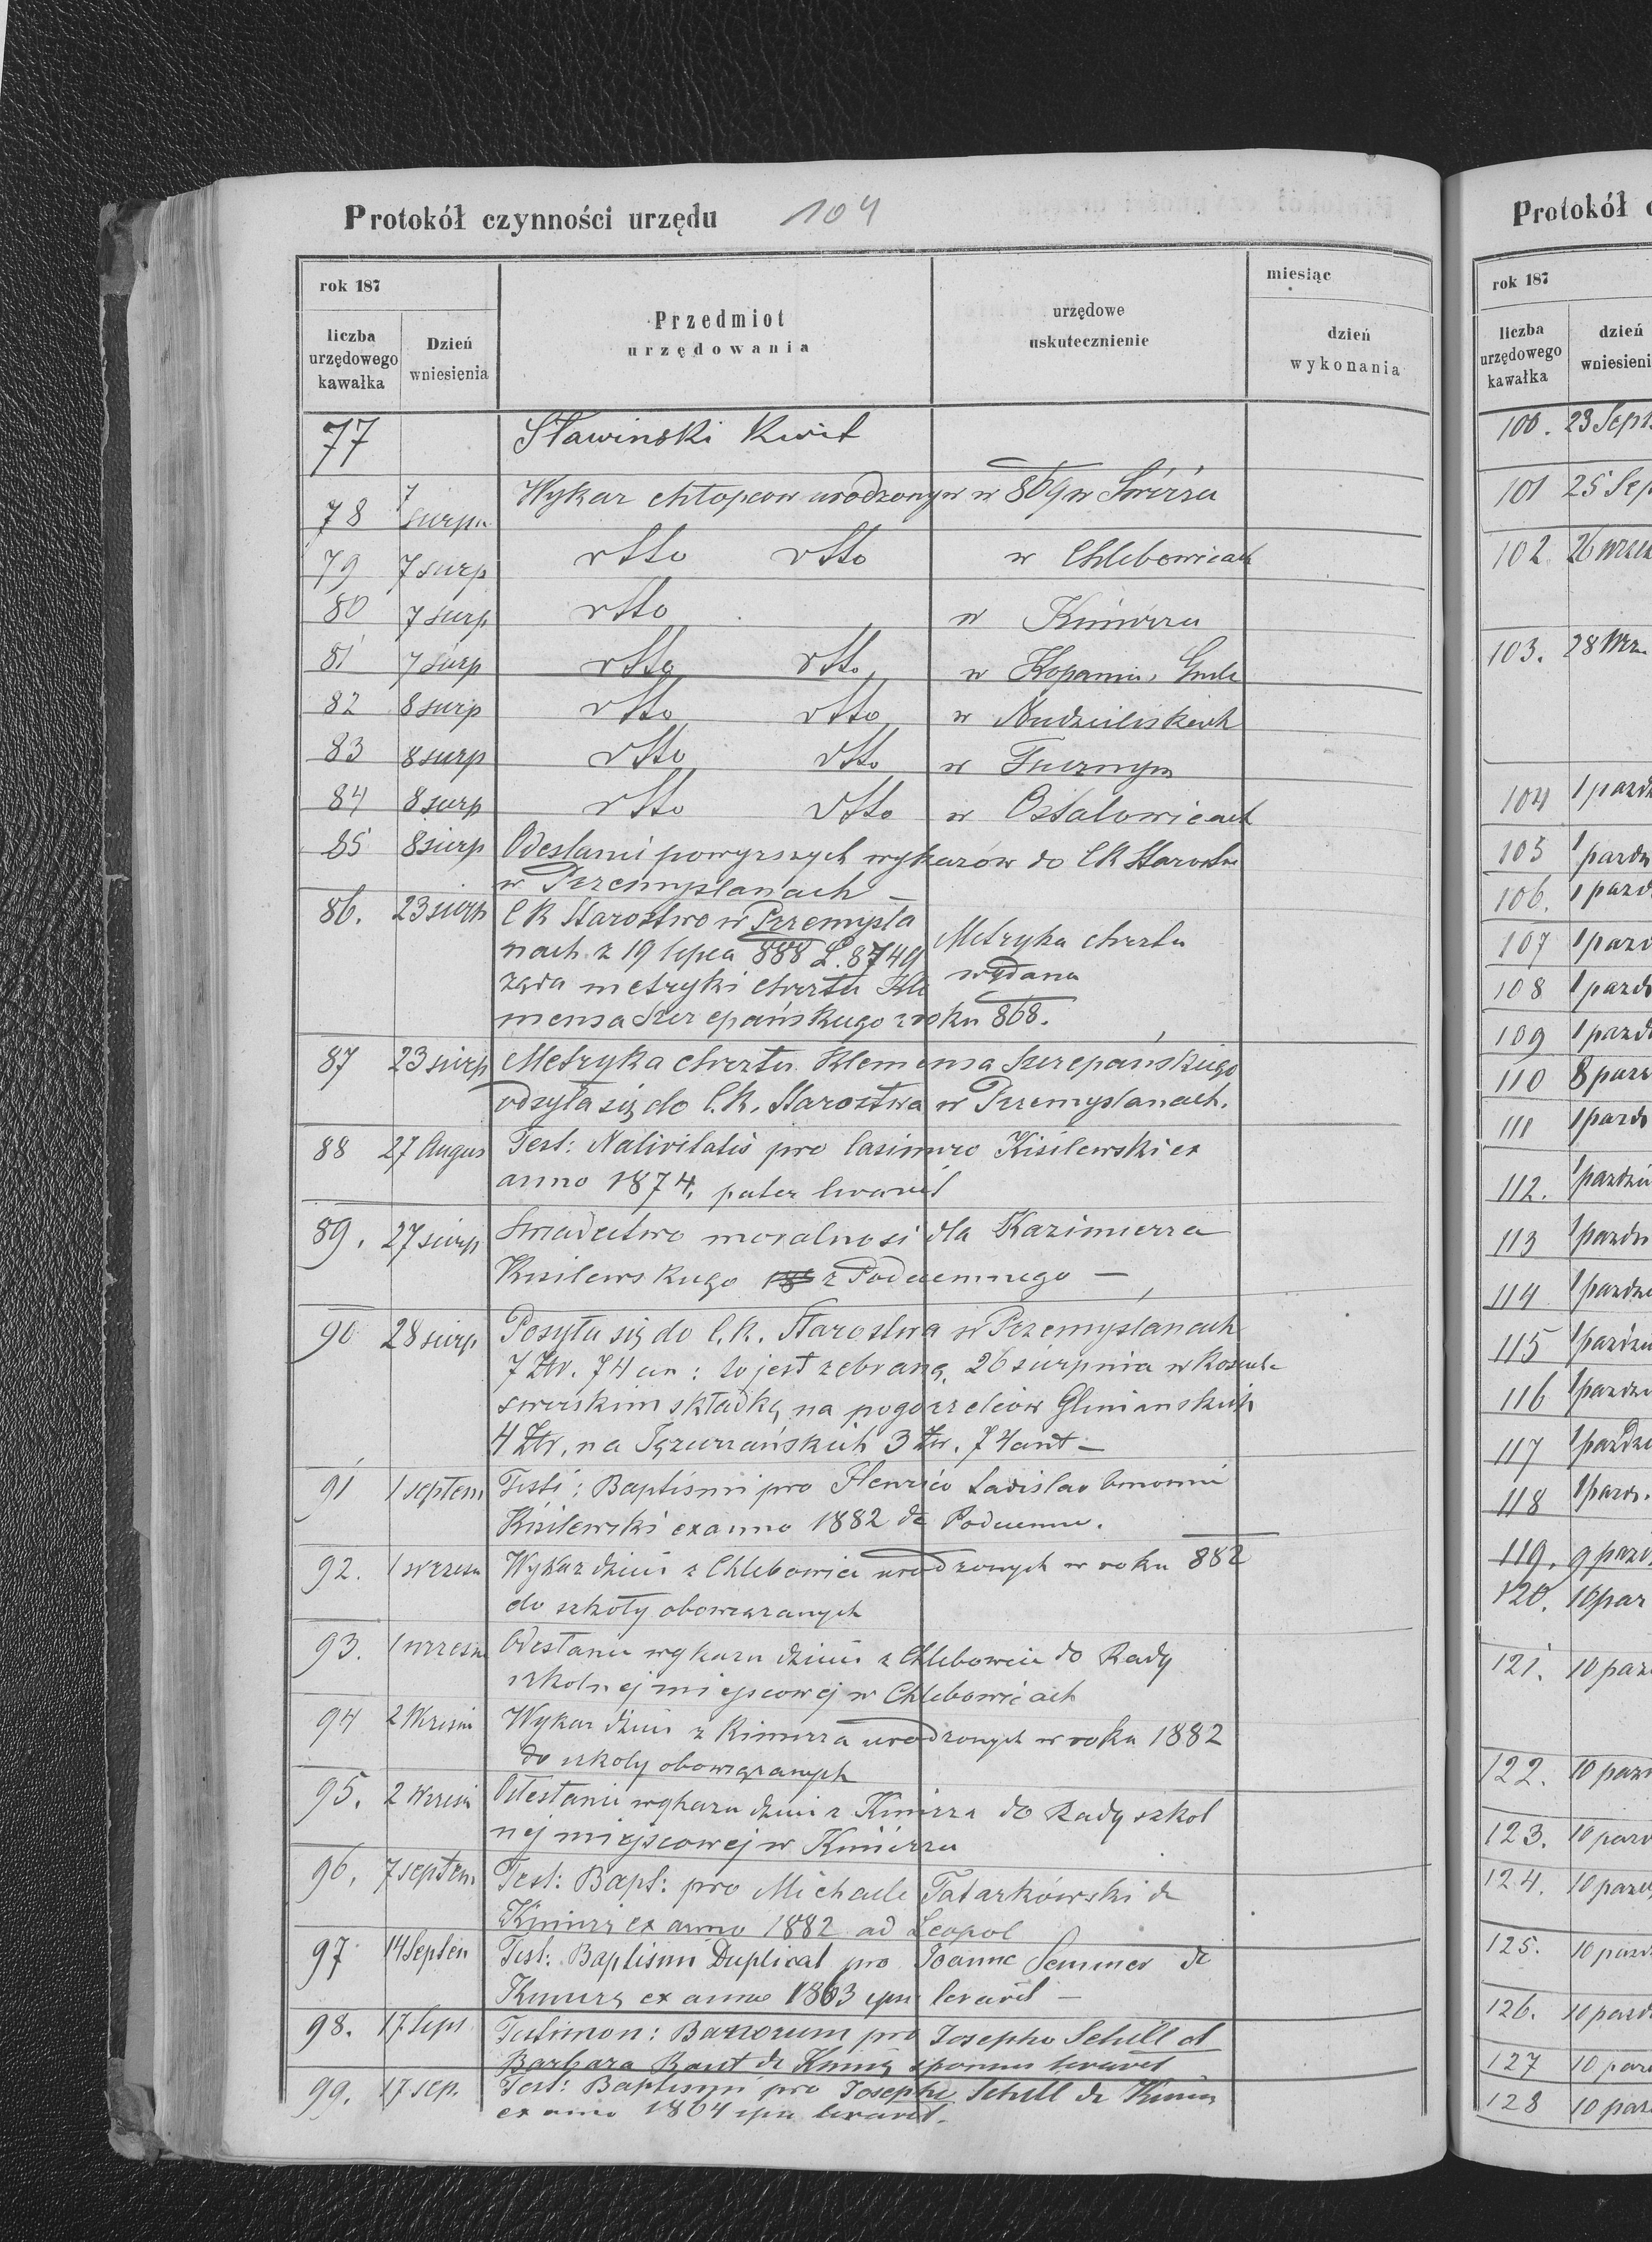 Protokół czynności urzędu 104
rok 187
liczba urzędowego kawałka
Dzień wniesienia
Przedmiot urzędowania
urzędowe uskutecznienie
miesiąc
dzień wykonania
77 Sławinski Kwit
78 7 sierpn Wykaz chłopców urodzonych w 869 w Świrzu
79 7 sierp dtto dtto w Chlebowicach
80 7 sierp dtto w Kimirzu
81 7 sierp dtto dtto w Kopaniu
82 8 sierp dtto dtto w
83 8 sierp dtto dtto w
84 8 sierp dtto dtto w Ostalowicach
85 8 sierp Odesłanie powyzszych wykazów do CK Starostw
w Przemyslanach –
86. 23 sierp CK Starostwo w Przemysla
nach z 19 lipca 888 L. 8749 Metryka chrztu
ząda metryki chrztu Kle wydana
mensa Szczepańskiego z roku 868.
87 23 sierp Metryka chrztu Klemensa Szczepańskiego
odsyła się do C.K. Starostwa w Przemyslanach.
88 27 Augus Test: Nativitatis pro Casimiro Kisilewski ex
anno 1874, pater levavit
89. 27 sierp Swiadectwo moralnosi dla Kazimierza
Kisilewskiego z Podciemnego –
90 28 sierp Posyła się do C.K. Starostwa w Przemyslanach
7 Złr. 74 cen: to jest zebraną 26 sierpnia w Kosciele
swirskim składkę na pogorzelców Glinianskich
4 Złr, na 3 Złr. 74 cnt –
91 1 septem Testi: Baptismi pro Henrico Ladislao
Kisilewski ex anno 1882 de Podciemne.
92. 1 wrzesn Wykaz dzieci z Chlebowic urodzonych w roku 882
do szkoły obowiązanych
93. 1 wrzesn Odesłanie wykazu dzieci z Chlebowic do Rady
szkolnej miejscowej w Chlebowicach
94 2 Wrzesn Wykaz dzieci z Kimirza urodzonych w roku 1882
do szkoły obowiązanych
95. 2 Wrzesn Odesłanie wykazu dzieci z Kimirza do Rady szkol
nej miejscowej w Kimirzu
96. 7 septem Test: Bapt: pro Michaele Tatarkówski de
Kimirz ex anno 1882 ad Leopol
97 14 Septem Test: Baptismi Duplicat pro Joanne Semmer de
Kimirz ex anno 1863 ipse levavit –
98. 17 Sept Testimon: Bannorum pro Josepho Schill et
Barbara de Kimirz sponsus levavit
99. 17 sep. Test: Baptismi pro Josepho Schill de Kimirz
ex anno 1864 ipse levavit.
Protokół
rok 187
liczba urzędowego kawałka
dzień
100. 23 Sept
101 25 Sep
102 26
103. 28 Wrz
104 1
105 1
106. 1
107 1
108 1
109 1
110 8
111 1
112. 1
113 1
114 1
115 1
116 1
117 1
118 1
119. 9
120. 10
121. 10
122. 10
123. 10
124. 10
125. 10
126. 10
127 10
128 10